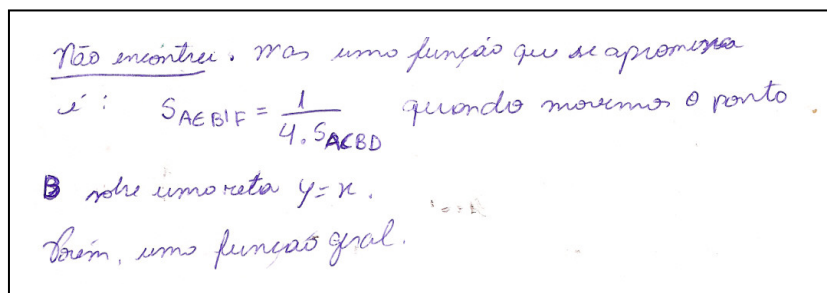 Não encontrei. Mas uma função que se aproxima
é: S_AEB'F = 1/(4. S_ACBD) quando movemos o ponto
B sobre uma reta y=x.
Porém, uma função geral.